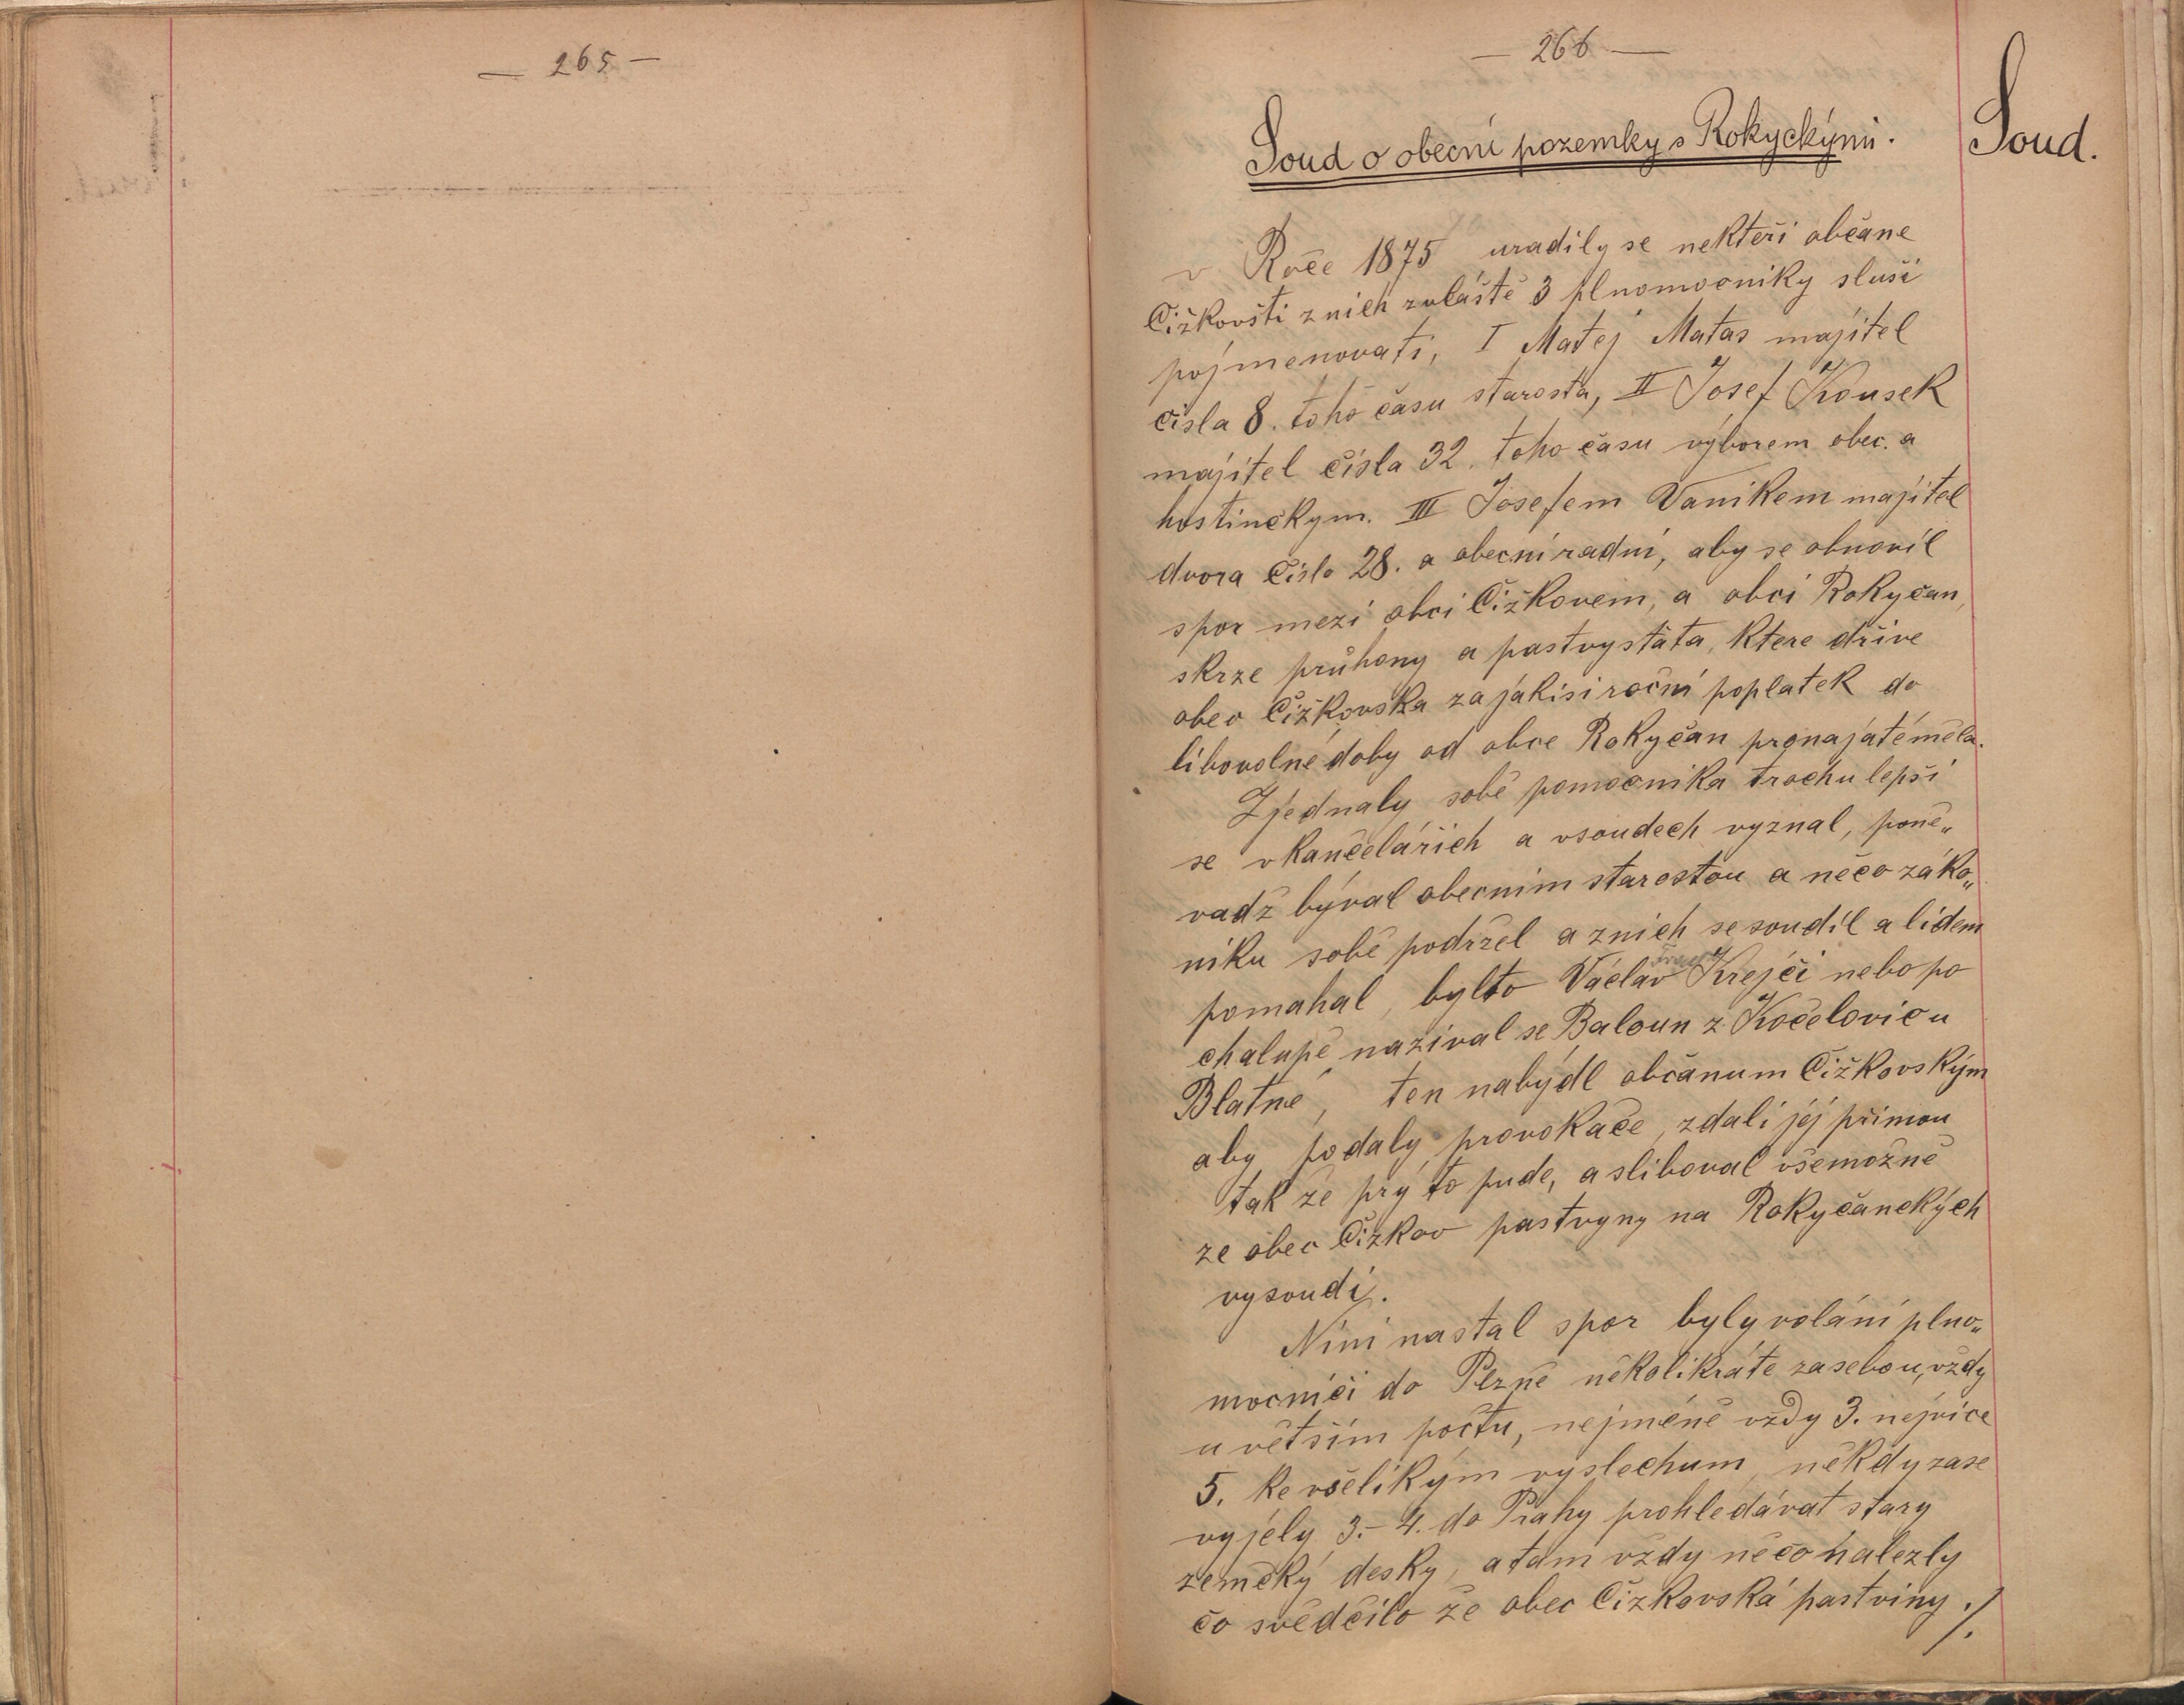 — 265 —
— 266 —
Soud.
Soud o obecní pozemky s Rokyckými.
v Roce 1875 uradily se nekteři občane
Čižkovšti z nich zvláště 3 plnomocniky sluší
pojmenovati, I Matěj Matas majitel
čisla 8. toho času starosta, II Josef Kousek
majitel čísla 32. toho času výborem obec. a
hostinckym. III Josefem Vanikem majitel
dvora číslo 28. a obecní radní, aby se obnovil
spor mezi obci Čižkovem, a obci Rokyčan,
skrze průhony a pastvystáta, ktere dřive
obec Čižkovska za jakisi roční poplatek do
libovolné doby od obce Rokyčan pronajaté měla.
Zjednaly sobě pomocnika trochu lepší
se v kančelářich a v soudech vyznal, poně„
vadž býval obecnim starostou a něco záko„
niku sobě podržel a z nich se soudil a lidem
pomahal, bylto Václav Krejči nebo po
chalupě nazival se Baloun z Kočelovic u
Blatné, ten nabýdl občanum Čižkovským
aby podaly provokace, zdali jéj přimou
tak že prý to pude, a sliboval všemožně
že obec Čižkov pastvyny na Rokyčanckých
vysoudí.
Nini nastal spor byly voláni plno„
mocníci do Plzně několikráte za sebou, vždy
u větsím počtu, nejméně vždy 3. nejvice
5. ke všelikým vyslechum, někdy zase
vyjely 3.-4. do Prahy prohledávat stary
zemcký desky, a tam vždy něčo nalezly
čo svědčilo že obec Čižkovská pastviny ./.